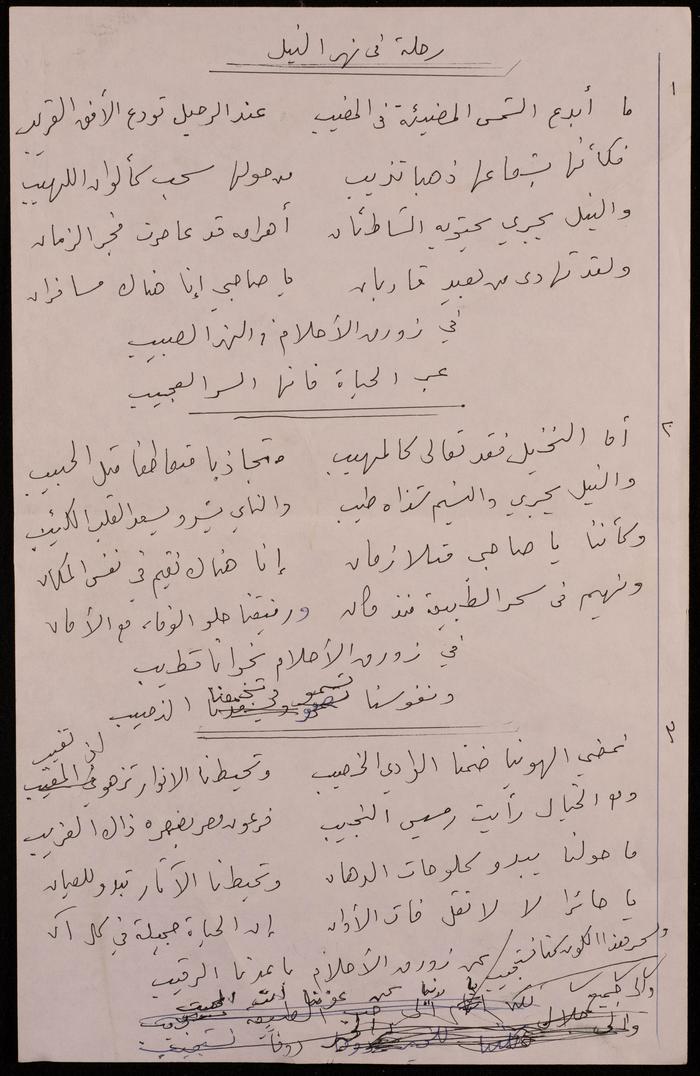 رحلة في نهر النيل
١
ما أبدع الشمس المضيئة في المغيب عند الرحيل تودع الأفق القريب
فكأنها بشعاعها ذهبا تذيب من حولها سحب كألوان اللهيب
والنيل يجري يحتويه الشاطئان أهرامه قد عاصرت فجر الزمان
ولقد تهادى من بعيد قاربان يا صاحبي إنا هناك مسافران
في زورق الأحلام والنهر الحبيب
عبر الحياة فانها السر العجيب
٢
أما النخيل فقد تعالى كالمهيب متجاذبا متعاطفا مثل الحبيب
والنيل يجري والنسيم شذاه طيب والناي يشدو يسعد القلب الكئيب
وكأننا يا صاحبي متلازمان إنا هناك نقيم في نفس المكان
ونهيم في سحر الطبيعة منذ كان ورفيقنا حلو الوفاء مع الأمان
في زورق الأحلام نجوانا تطيب
ونفوسنا تسمو
٣
نمضي الهوينا ضمنا الوادي الخصيب وتحيطنا الانوار تزهو في المغيب
لن تغيب
ومع الخيال رأيت رمسيس النجيب فرعون مصر بقصره ذاك الغريب
ما حولنا يبدو كلوحات الدهان وتحيطنا الآثار تبدو للعيان
يا حائرا لا لا تقل فات الأوان إن الحياة جميلة في كل آن
عن زورق الأحلام ما عدنا الرقيب